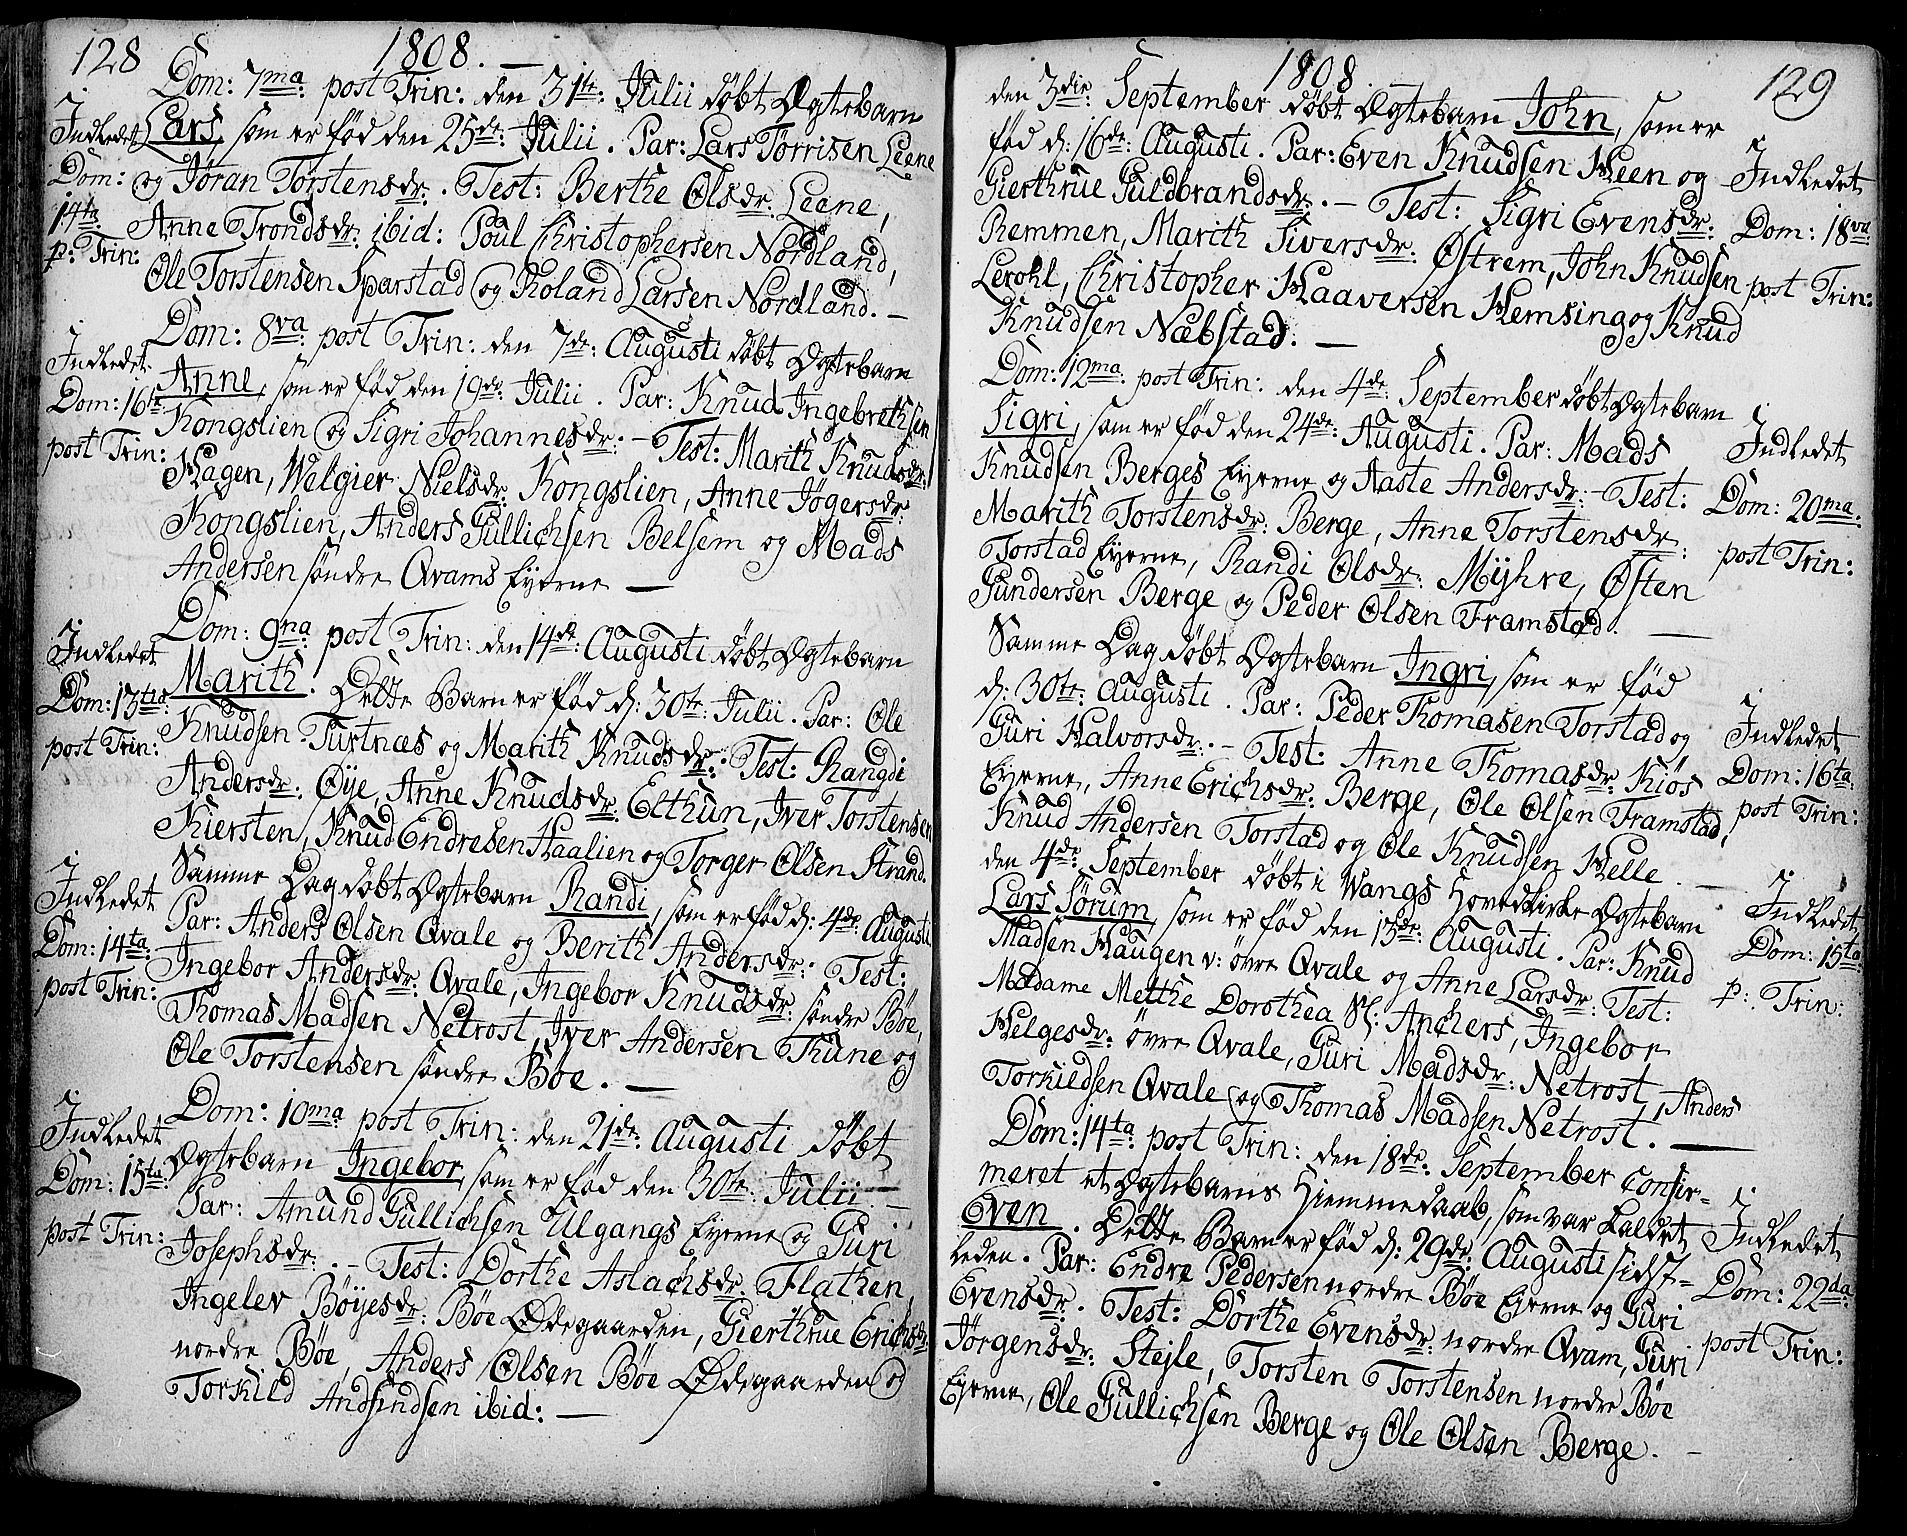 128
1808. —
Dom: 7ma: post Trin: den 31te: Julii döbt Ægtebarn
Lars, som er föd den 25de: Julii. Par: Lars Torrisen Leene
og Jöran Torstensdr:. Test: Berthe Olsdr: Leene,
Anne Trondsdr: ibid: Poul Christophersen Nordland,
Ole Torstensen Sparstad og Roland Larsen Nordland. —
Indledet
Dom:
14ta
p: Trin:
Dom: 8va: post Trin: den 7de: Augusti döbt Ægtebarn
Anne, som er föd den 19de: Julii. Par: Knud Ingebrethsen
Kongslien og Sigri Johannesdr:. — Test: Marith Knudsdr:
Hagen, Welgier Nielsdr: Kongslien, Anne Jögersdr:
Kongslien, Anders Gullichsen Belsem og Mads
Andersen söndre Qvams Eyerne —
Indledet
Dom: 16te
post Trin:
Dom: 9na: post Trin: den 14de: Augusti döbt Ægtebarn
Marith. Dette Barn er föd d: 30te: Julii. Par: Ole
Knudsen Turtnæs og Marith Knudsdr:. Test: Rangdi
Andersdr: Öye, Anne Knudsdr: Elthun, Iver Torstensen
Kiersten, Knud Endresen Haalien og Torger Olsen Strand.
Indledet
Dom: 13tia:
post Trin:
Samme Dag döbt Ægtebarn Randi, som er föd d: 4de: Augusti
Par: Anders Olsen Qvale og Berith Andersdr:. Test:
Ingebor Andersdr: Qvale, Ingebor Knudsdr: söndre Böe,
Thomas Madsen Netrost, Iver Andersen Thune og
Ole Torstensen söndre Böe. —
Indledet
Dom: 14ta:
post Trin:
Dom: 10ma post Trin: den 21de: Augusti döbt
Ægtebarn Ingebor, som er föd den 30te: Julii —
Par: Amund Gullichsen Ulgangs Eyerne og Guri
Josephsdr:. — Test: Dorthe Aslachsdr: Flathen,
Ingelev Böyesdr: Böe Ödegaarden, Gierthrue Erichsdr:
nordre Böe, Anders Olsen Böe Ödegaarden og
Torkild Andsindsen ibid: —
Indledet
Dom: 15ta:
post Trin:
1808.
129
den 3die: September döbt Ægtebarn John, som er
föd d: 16de: Augusti. Par: Even Knudsen Heen og
Gierthrue Guldbrandsdr:. — Test: Sigri Evensdr:
Remmen, Marith Siversdr: Östrem, John Knudsen
Lerohl, Christopher Haaversen Hemsing og Knud
Knudsen Næbstad. —
Indledet
Dom: 18va:
post Trin:
Dom: 12ma: post Trin: den 4de: September döbt Ægtebarn
Sigri, som er föd den 24de: Augusti. Par: Mads
Knudsen Berges Eyerne og Aaste Andersdr: — Test:
Marith Torstensdr: Berge, Anne Torstensdr:
Torstad Eyerne, Randi Olsdr: Myhre, Östen
Gundersen Berge og Peder Olsen Framstad. —
Indledet
Dom: 20ma:
post Trin:
Samme Dag döbt Ægtebarn Ingri, som er föd
d: 30te: Augusti. Par: Peder Thomasen Torstad og
Guri Halvorsdr:. — Test: Anne Thomasdr: Kiös
Eyerne, Anne Erichsdr: Berge, Ole Olsen Framstad,
Knud Andersen Torstad og Ole Knudsen Helle. —
Indledet
Dom: 16ta
post Trin:
den 4de: September döbt i Wangs Hovedkirke Ægtebarn
Lars Sörum, som er föd den 15de: Augusti. Par: Knud
Madsen Haugen v: övre Qvale og Anne Larsdr: Test:
Madame Metthe Dorothea Sl: Anchers, Ingebor
Helgesdr: övre Qvale, Guri Madsdr: Netrost, Anders
Torkildsen Qvale og Thomas Madsen Netrost. —
Indledet
Dom: 15ta:
p: Trin:
Dom: 14ta: post Trin: den 18de: September confir-
meret et Ægtebarns Hiemmedaab, som var kaldet
Even. Dette Barn er föd d: 29de: Augusti sidst-
leden. Par: Endre Pedersen nordre Böe Eyerne og Guri
Evensdr:. Test: Dorthe Evensdr: nordre Qvam, Guri
Jörgensdr: Stejle, Torsten Torstensen nordre Böe
Eyerne, Ole Gullichsen Berge og Ole Olsen Berge. —
Indledet
Dom: 22da:
post Trin: